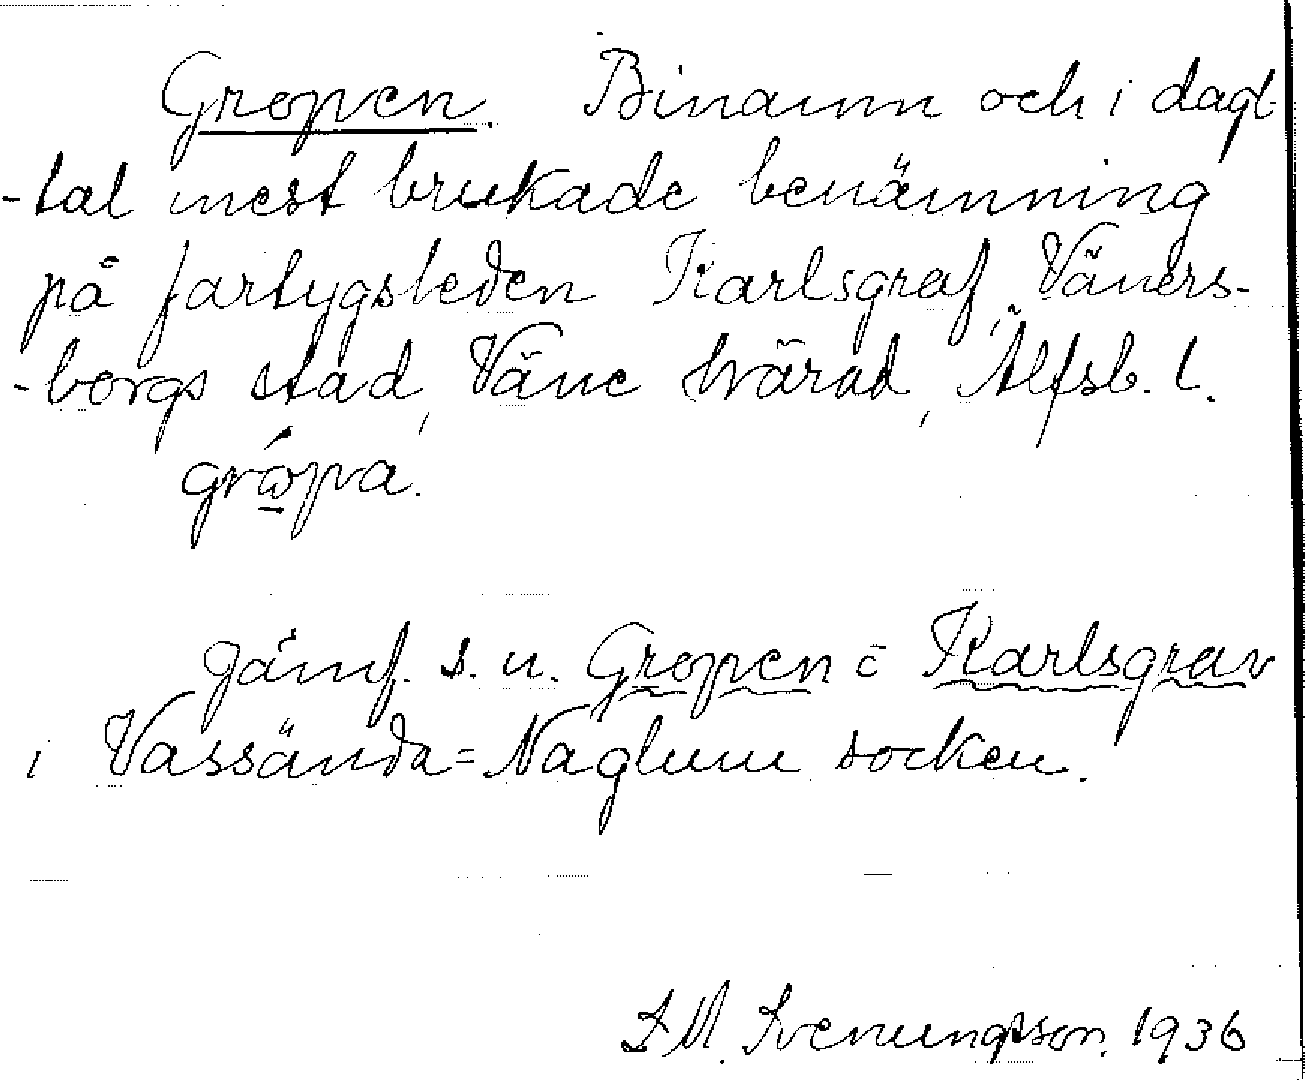 Gropen. Binamn och i dagl-
-tal mest brukade benämning
på fartygsleden Karlsgraf, Väners-
-borgs stad, Väne härad, Älfsb. l.
grópa.
Jämf. s. u. Gropen = Karlsgrav
i Vassända=Naglum socken.
I M. Svenungsson. 1936